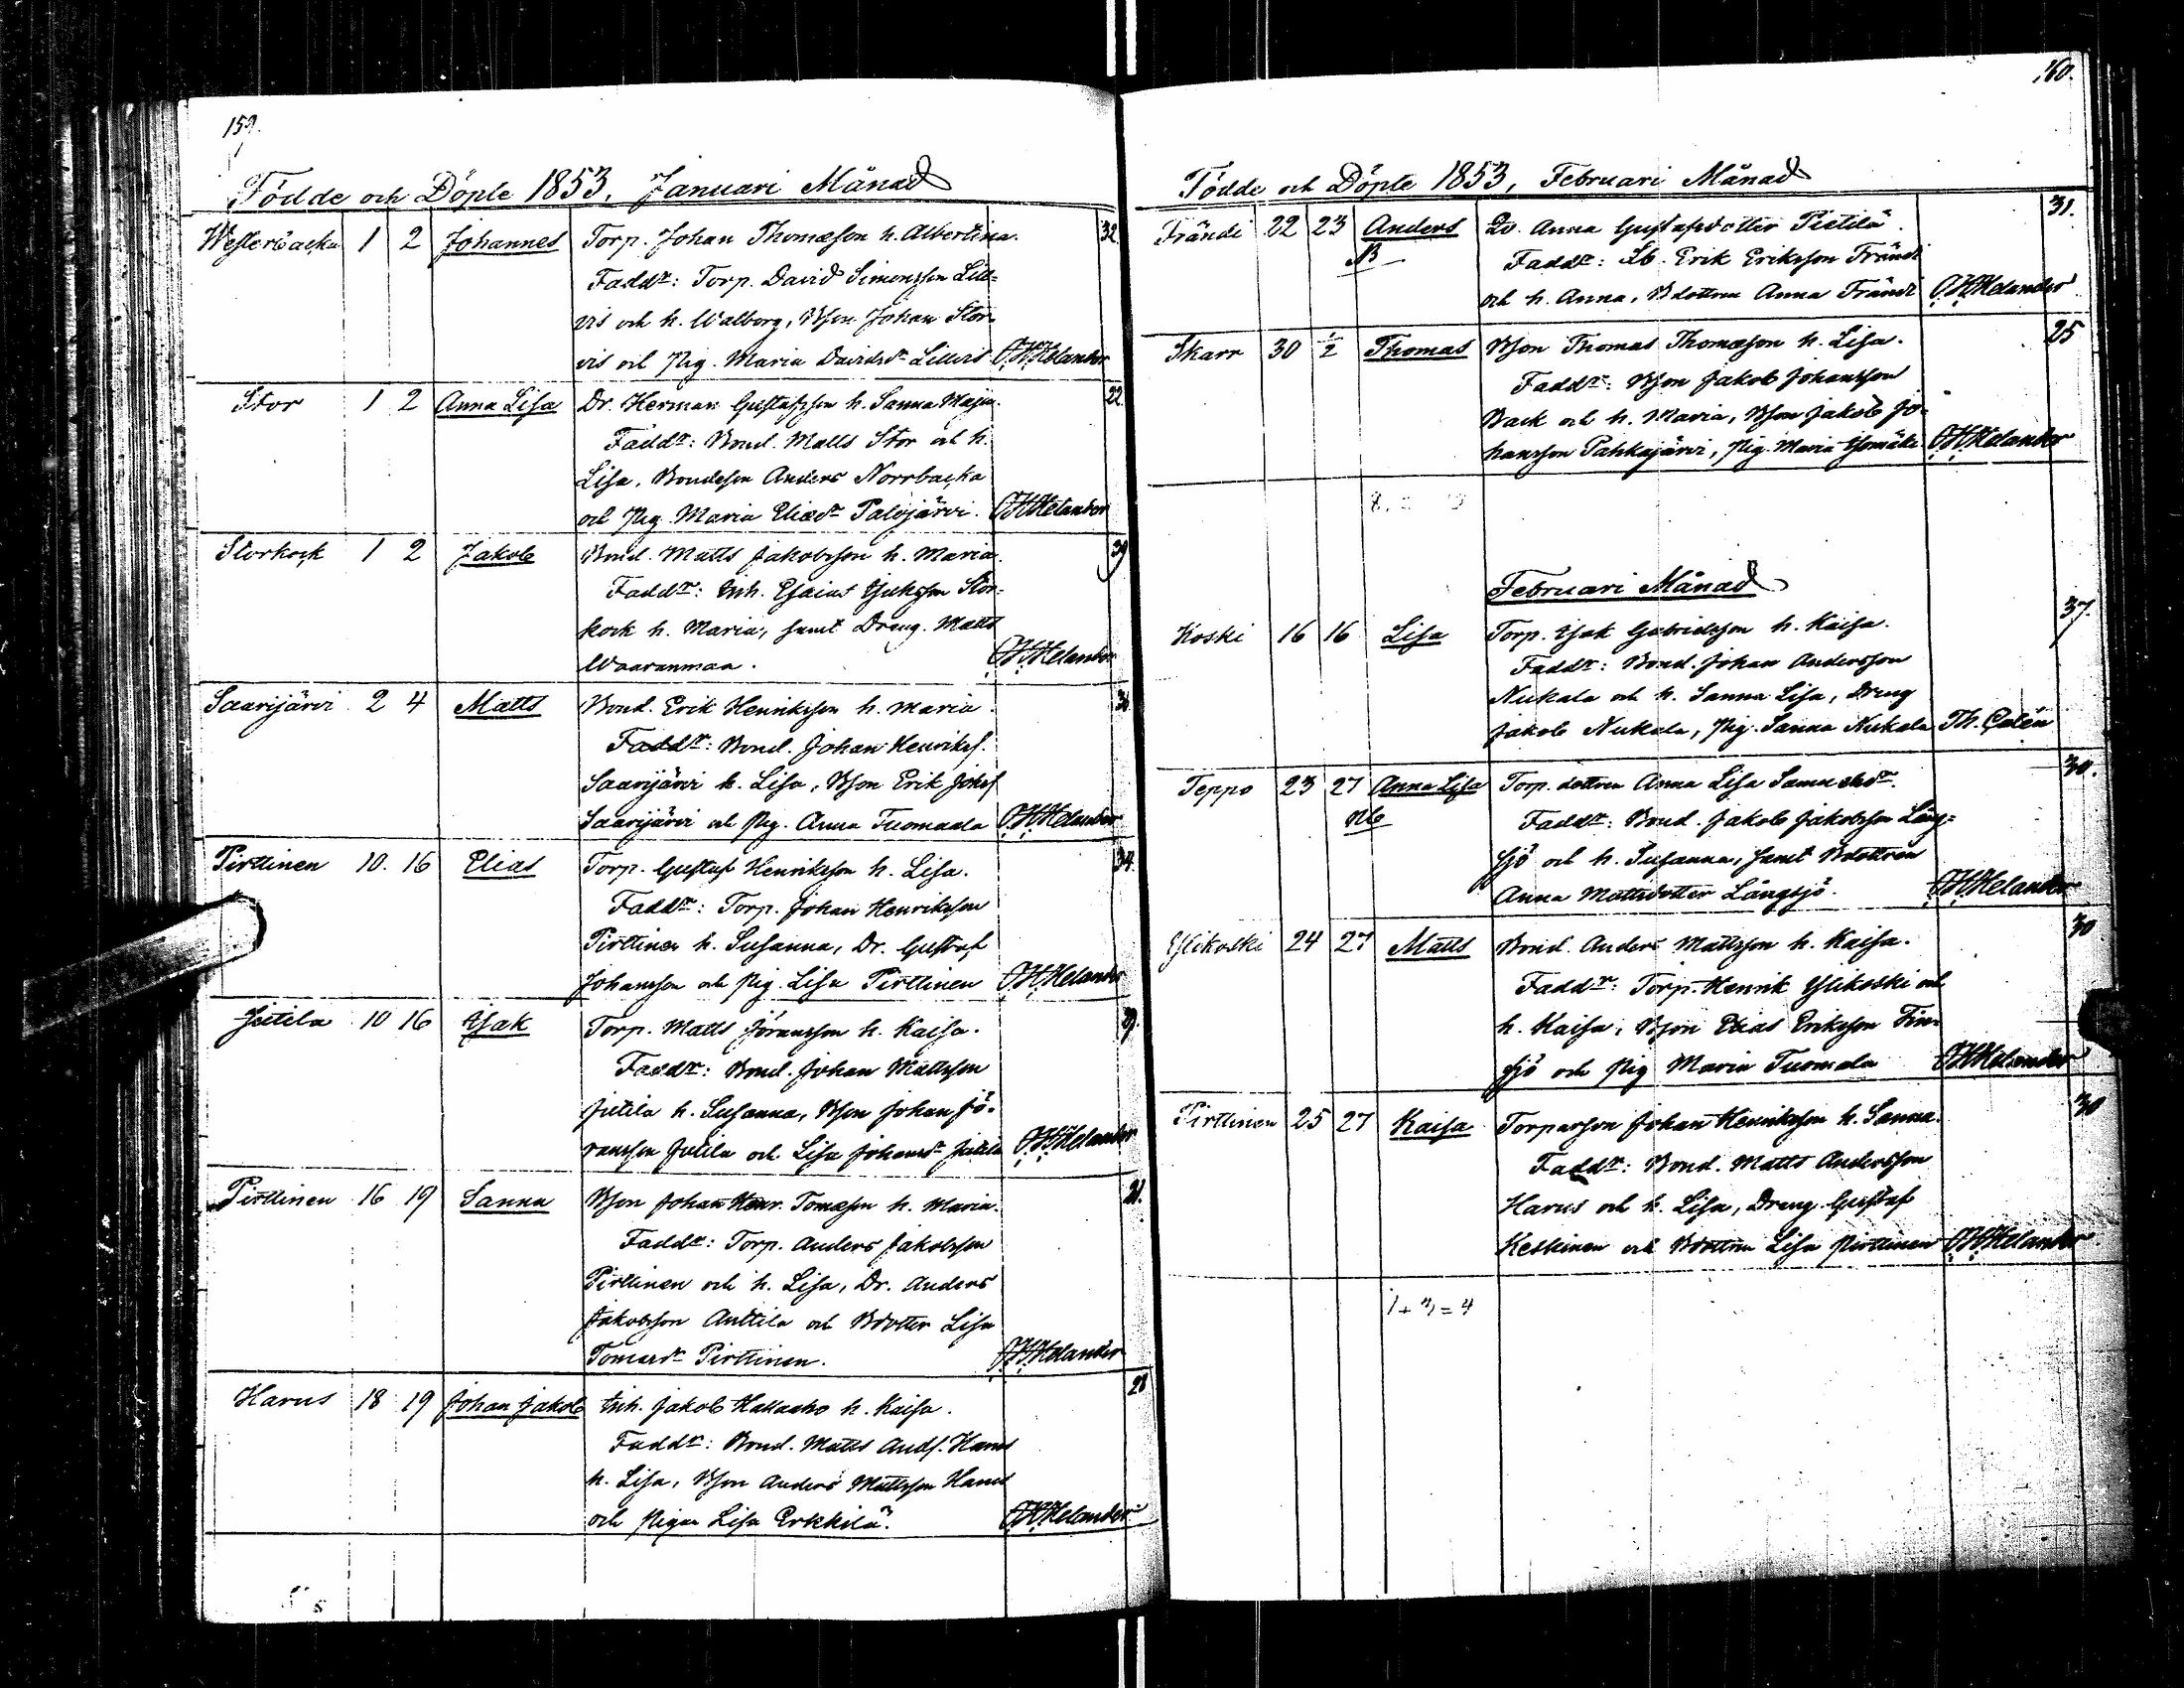 159.
Födde och Döpte 1853. Januari Månad
Westerbacka 1 2 Johannes Torp. Johan Thomasson h. Albertina. 32
Faddr: Torp. David Simonsson Lill-
vis och h. Walborg, Bson Johan Stor-
vis och Pig. Maria Davidsdr Lillvis OHHelander
Stor 1 2 Anna Lisa Dr. Herman Gustafsson h. Sanna Maja. 22
Faddr: Bond. Matts Stor och h.
Lisa, Bondeson Anders Norrbacka
och Pig. Maria Eliasdr Palojärvi. OHHelander
Storkock 1 2 Jakob Bond. Matts Jakobsson h. Maria. 39
Faddr: Inh. Esaias Isaksson Stor-
kock h. Maria, samt Dräng. Matts
Waaranmaa. OHHelander
Saarijärvi 2 4 Matts Bond. Erik Henriksson h. Maria.
Faddr: Bond. Johan Henriks.
Saarijärvi h. Lisa, Bson Erik Johs
Saarijärvi och Pig. Anna Tuomaala OHHelander
Pirttinen 10. 16 Elias Torp. Gustaf Henriksson h. Lisa. 34.
Faddr: Torp. Johan Henriksson
Pirttinen h. Susanna, Dr. Gustaf
Johansson och Pig. Lisa Pirttinen OHHelander
Jutila 10 16 Isak Torp. Matts Jöransson h. Kaisa. 29.
Faddr: Bond. Johan Mattsson
Jutila h. Susanna, Bson Johan Jö-
ransson Jutila och Lisa Johansdr Jutila OHHelander
Pirttinen 16 19 Sanna Bson Johan Henr. Tomasson h. Maria. 21.
Faddr: Torp. Anders Jakobsson
Pirttinen och h. Lisa, Dr. Anders
Jakobsson Anttila och Bdotter Lisa
Tomasdr Pirttinen. OHHelander
Harus 18 19 Johan Jakob Inh. Jakob Hallaaho h. Kaisa. 28
Faddr: Bond. Matts Ands. Harus
h. Lisa, Bson Anders Mattsson Harus
och Pigan Lisa Erkkilä. OHHelander
160.
Födde och Döpte 1853, Februari Månad
Frändi 22 23 Anders Lö. Anna Gustafsdotter Pietilä. 31.
NB Faddr: Lb. Erik Eriksson Frändi
och h. Anna, Bdottren Anna Frändi OHHelander
Skarr 30 1/2 Thomas Bson Thomas Thomasson h. Lisa. 25
Faddr: Bson Jakob Johansson
Back och h. Maria, Bson Jakob Jo-
hansson Pahkajärvi, Pig. Maria Isomäki OHHelander
Februari Månad
Koski 16 16 Lisa Torp. Isak Gabrielsson h. Kaisa. 37.
Faddr: Bond. Johan Andersson
Nukala och h. Sanna Lisa, Dreng
Jakob Nukala, Pig. Sanna Nukala Th. Calén
Teppo 23 27 Anna Lisa Torp. dottren Anna Lisa Samuelsdr. 30.
Nb Faddr: Bond. Jakob Jakobsson Lång-
sjö och h. Susanna, samt Bdottren
Anna Mattsdotter Långsjö. OHHelander
Ylikoski 24 27 Matts Bond. Anders Mattsson h. Kaisa. 30
Faddr: Torp. Henrik Ylikoski och
h. Kaisa, Bson Elias Eriksson Fin-
sjö och Pig Maria Tuomala OHHelander
Pirttinen 25 27 Kaisa Torparson Johan Henriksson h. Sanna. 30
Faddr: Bond. Matts Andersson
Harus och h. Lisa, Dreng. Gustaf
Keskinen och Bdottren Lisa Pirttinen OHHelander
1 + 3 = 4